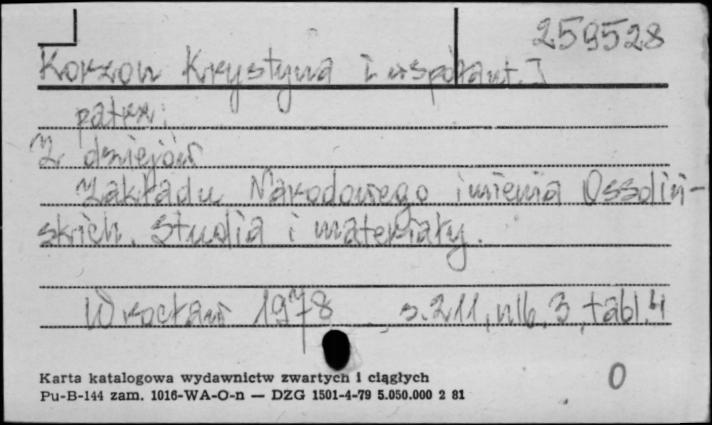 259528
Korzon Krystyna i współaut.]
patrz:
Z dziejów
Zakładu Narodowego imienia Ossoliń-
skich. Studia i materiały.
Wrocław 1978 s. 211, nlb. 3, tabl. 4
Karta katalogowa wydawnictw zwartych i ciągłych
Pu-B-144 zam. 1016-WA-O-n — DZG 1501-4-79 5.050.000 2 81
0